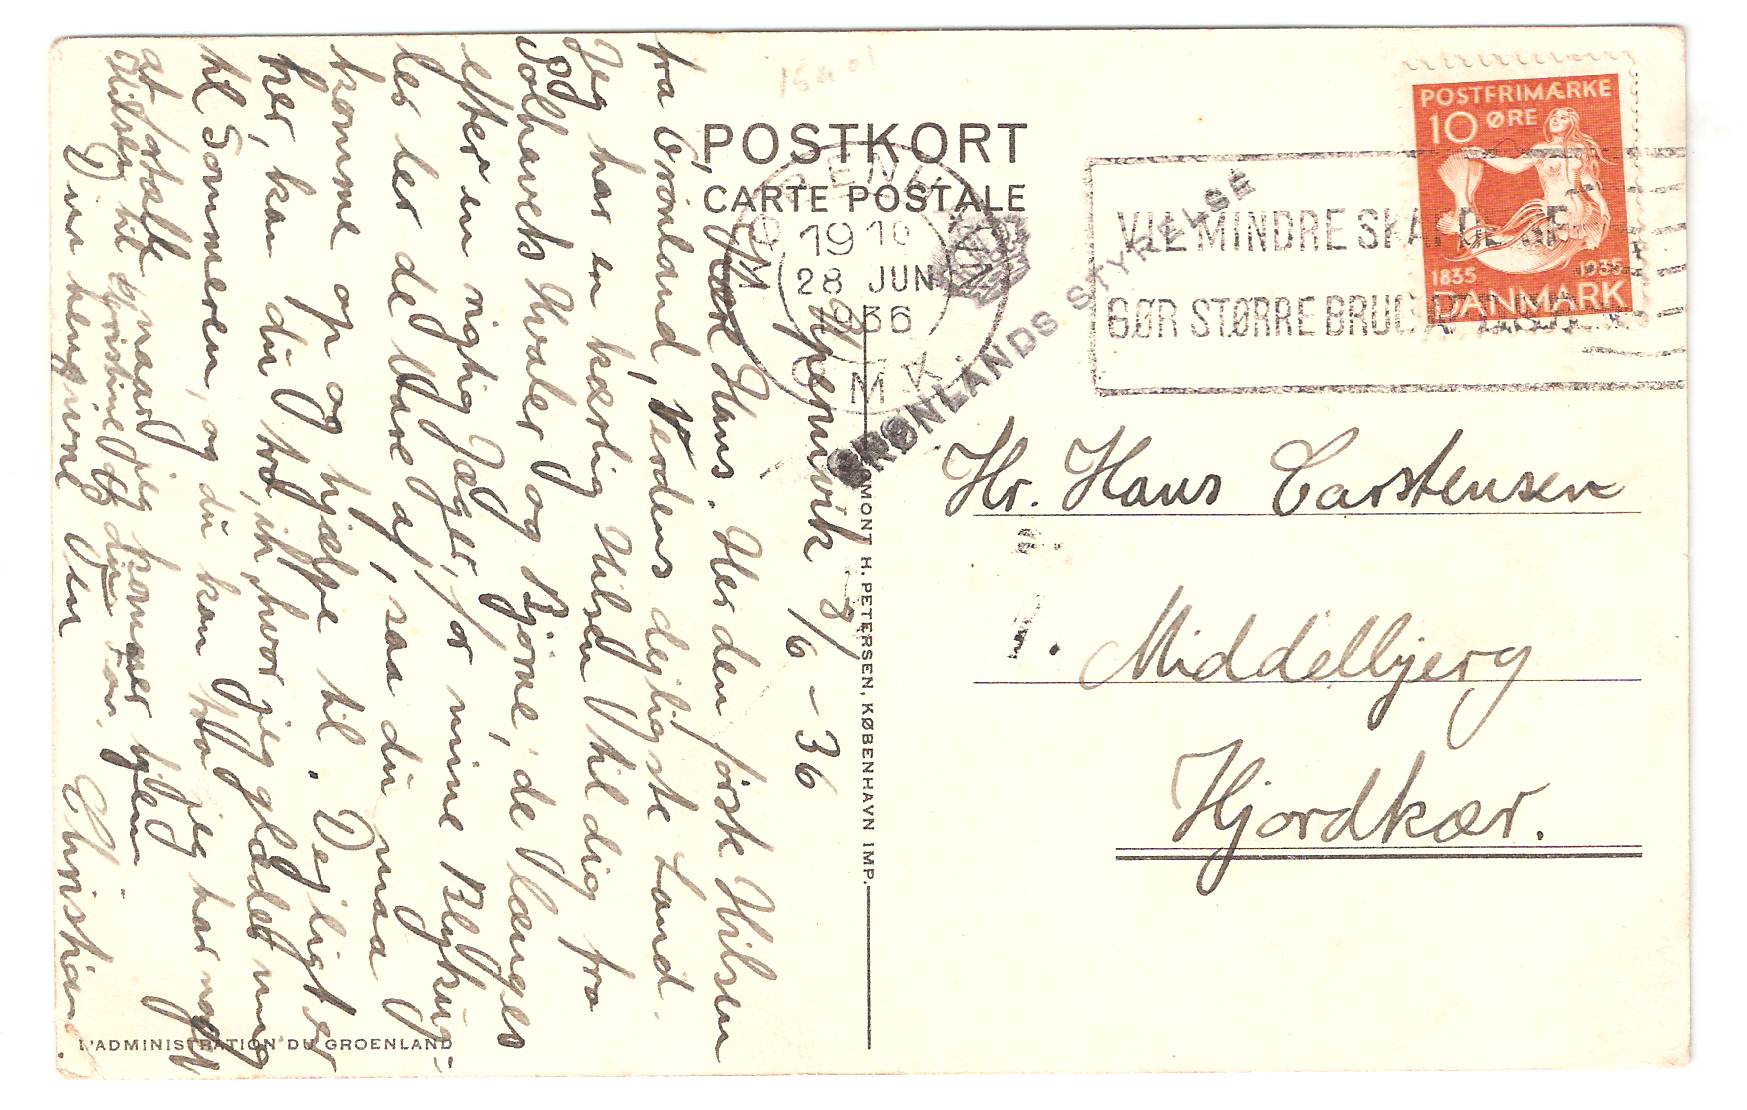 POSTKORT
CARTE POSTALE
KØBENHAVN
OMK
19 10
28 JUN
1936
GRØNLANDS STYRELSE
POSTFRIMÆRKE
10 ØRE
1835 1935
DANMARK
VIL MINDRE SKA
GØR STØRRE BRUG AF
Upernivik 8/6 - 36
Kære Hans. Her den første Hilsen
fra Grönland, Verdens dejligste Land.
Jeg har en kærlig Hilsen til dig fra
Polhavets Hvaler og Bjørne, de længes
efter en rigtig Jæger, for mine Blykug-
ler ler de bare af, saa du maa
komme op og hjælpe til. Dejligt er
her, kan du tro, ih, hvor jeg glæder mig
til Sommeren, og du kan tro jeg har noget
at fortælle naar jeg kommer hjem
Hilsen til Kjestine og din Far.
Din hengivne Ven Christian.
L'ADMINISTRATION DU GROENLAND
EGMONT H. PETERSEN, KØBENHAVN IMP.
Hr. Hans Carstensen
Middelbjerg
Hjordkær.